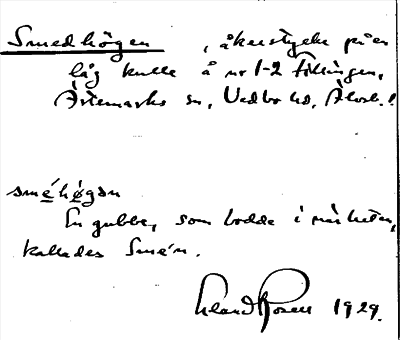 Smedhögen, åkerstycke på en
låg kulle å nr 1-2 Fölungen,
Ärtemarks sn, Vedbo hd, Älvsb. l.
sméhø̀gən
En gubbe, som bodde i närheten,
kallades Smén.
Rosell 1929.